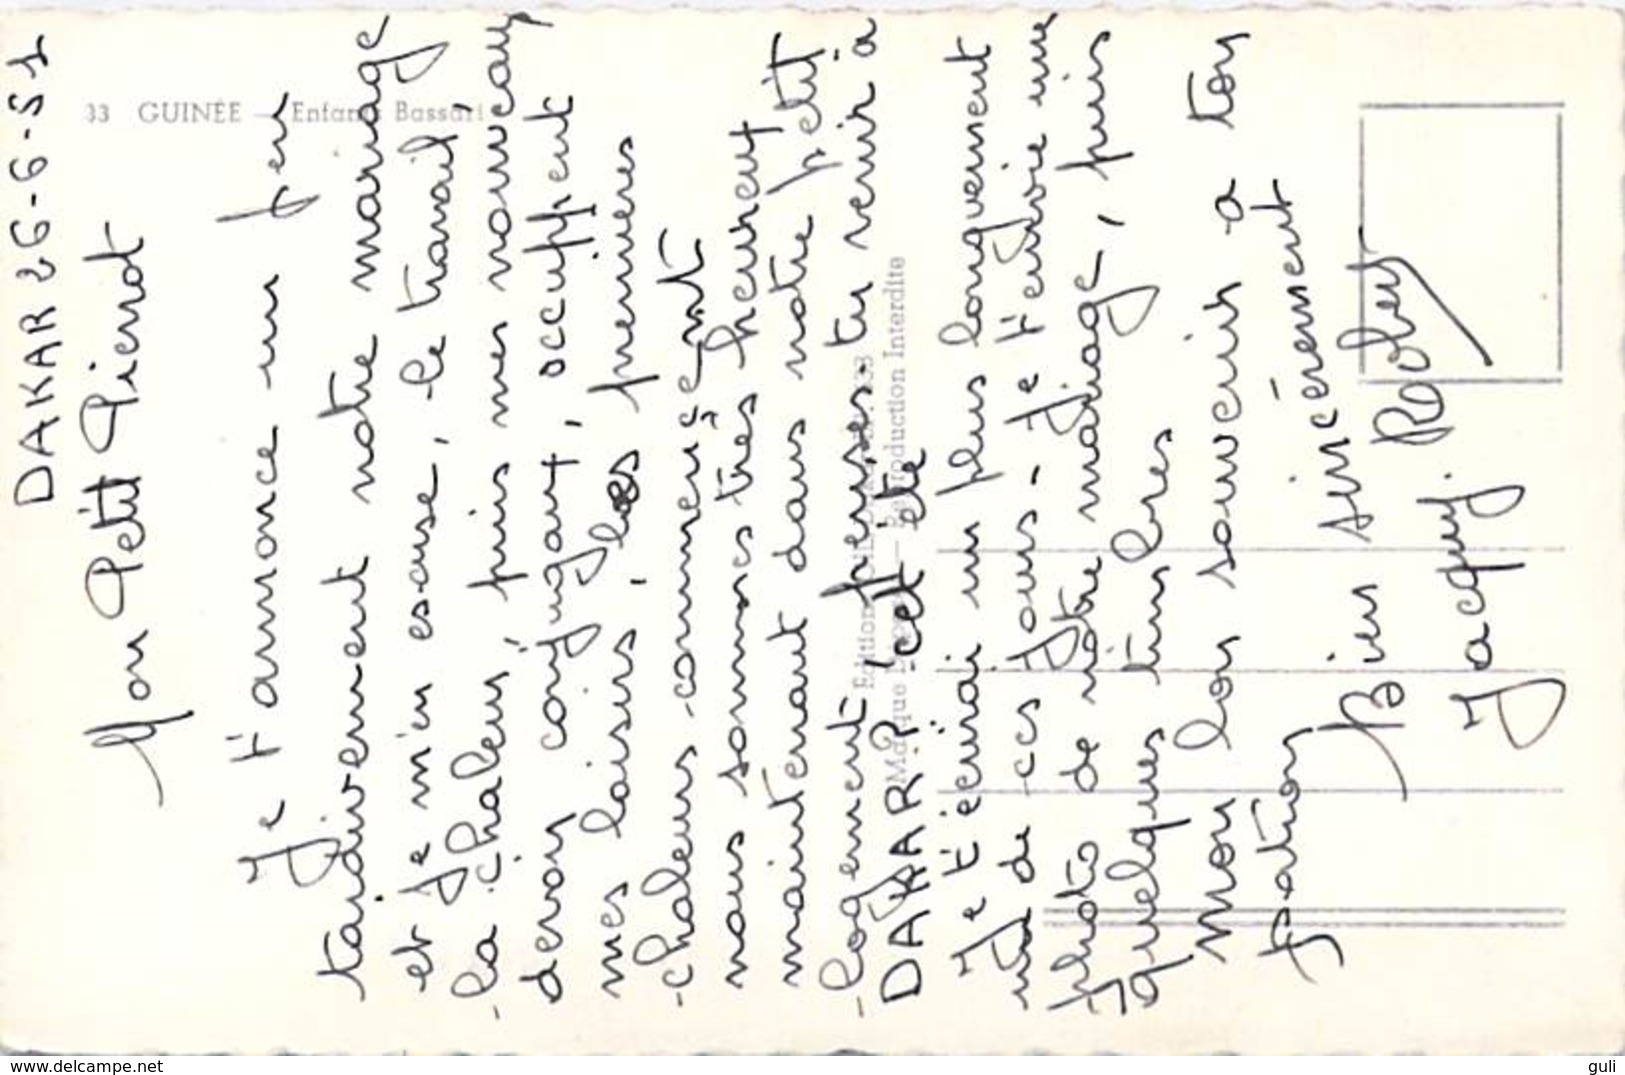 DAKAR 26-6-51
Mon Petit Pierrot
Je t'annonce un peu
tardivement notre mariage
et Je m'en excuse, le travail,
la chaleur, puis mes nouveaux
devoirs conjugaux, occuppent
mes loisirs, les premieres
chaleurs commencent
nous sommes très heureux
maintenant dans notre petit
logement penses-tu venir à
DAKAR? cet été
Je t'écrirai un plus longuement
un de ces Jours - Je t'envoie une
photo de notre mariage, puis
quelques timbres
Mon bon souvenir à ton
patron
Bien sincérement
Jacquy.
33 GUINÉE — Enfants Bassari
Reproduction Interdite
www.delcampe.net
guli